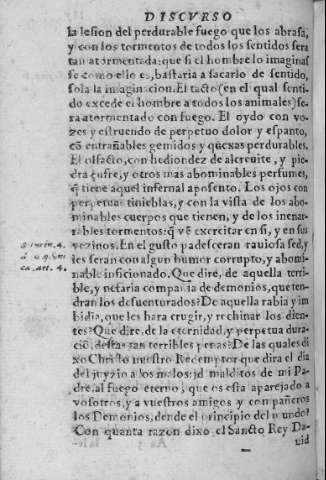 DISCVRSO
la lesion del perdurable fuego que los abrasa,
y con los tormentos de todos los sentidos sera
tan atormentada: que si el hombre lo imaginas
se como ello es, bastaria a sacarlo de sentido,
sola la imaginacion. El tacto (en el qual senti-
do excede el hombre a todos los animales) se-
ra atormentado con fuego. El oydo con vo-
zes y estruendo de perpetuo dolor y espanto,
cõ entrañables gemidos y quexas perdurables.
El olfacto, con hediondez de alcreuite, y pie
dra çufre, y otros mas abominables perfumes,
q̃ tiene aquel infernal aposento. Los ojos con
perpetuas tinieblas, y con la vista de los abo-
minables cuerpos que tienen, y de los inenar-
rables tormentos: q̃ vẽ exercitar en si, y en sus
vezinos. En el gusto padesceran rauiosa sed, y
les seran con algun humor corrupto, y abomi
nable inficionado. Que dire, de aquella terri-
ble, y nefaria compañia de demonios, que ten-
dran los desuenturados? De aquella rabia y im
bidia, que les hara crugir, y rechinar los dien-
tes? Que dire, de la eternidad, y perpetua dura-
ciõ, destas tan terribles penas? De las quales di
xo Christo nuestro Redemptor que dira el dia
del juyzio a los malos: id malditos de mi Pa-
dre, al fuego eterno, que os esta aparejado a
vosotros, y a vuestros amigos y compañeros
los Demonios, dende el principio del mundo?
Con quanta razon dixo el Sancto Rey Da-
uid